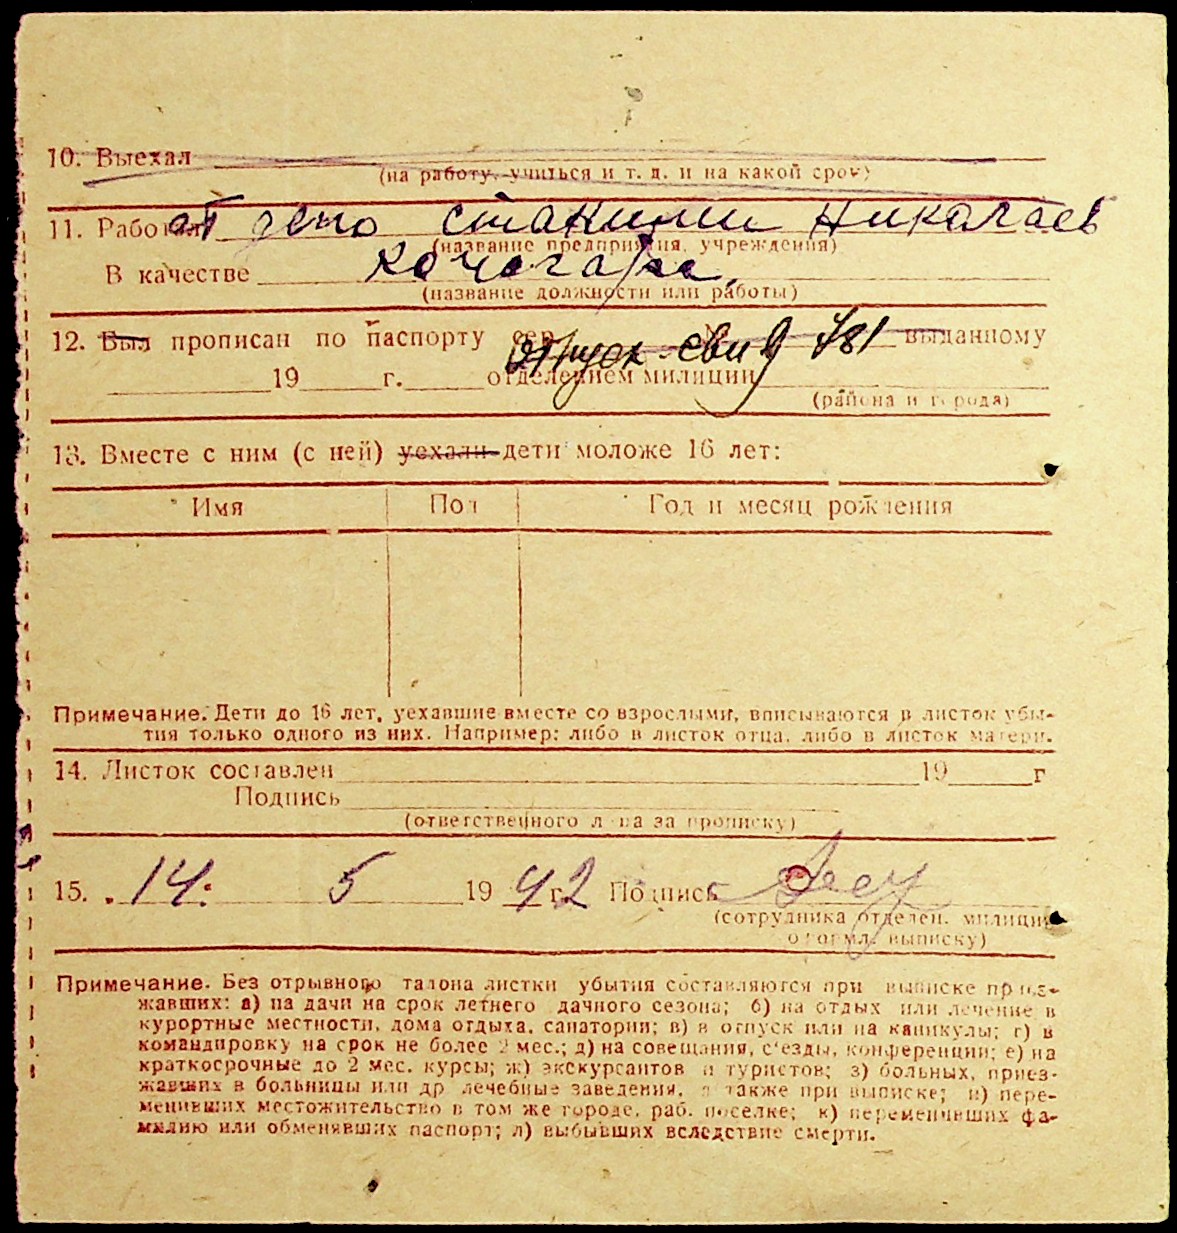 10. Выехал
(на работу, учиться и т. д. и на какой срок)
11. Работал от депо станции Николаев
(название предприятия, учреждения)
В качестве Кочегара
(название должности или работы)
12. Был прописан по паспорту сер. отпуск. свид 481 выданному
19 г. отделением милиции
(района и города)
13. Вместе с ним (с ней) уехали дети моложе 16 лет:
Имя Пол Год и месяц рождения
Примечание. Дети до 16 лет, уехавшие вместе со взрослыми, вписываются в листок убы-
тия только одного из них. Например: либо в листок отца, либо в листок матери.
14. Листок составлен 19 г
Подпись
(ответственного лица за прописку)
15. 14. 5 1942 г. Подпись
(сотрудника отделен. милиции
оформл. выписку)
Примечание. Без отрывного талона листки убытия составляются при выписке приез-
жавших: а) на дачи на срок летнего дачного сезона; б) на отдых или лечение в
курортные местности, дома отдыха, санатории; в) в отпуск или на каникулы; г) в
командировку на срок не более 2 мес.; д) на совещания, с'езды, конференции; е) на
краткосрочные до 2 мес. курсы; ж) экскурсантов и туристов; з) больных, приез-
жавших в больницы или др лечебные заведения, а также при выписке; и) пере-
менивших местожительство в том же городе, раб. поселке; к) переменивших фа-
милию или обменявших паспорт; л) выбывших вследствие смерти.